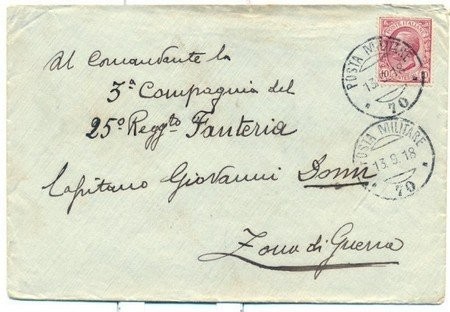 Al Comandante la
3ª Compagnia del
25º Reggto Fanteria
Capitano Giovanni
Zona di Guerra
POSTA MILITARE
13
70
POSTA MILITARE
13.9.18
70
10